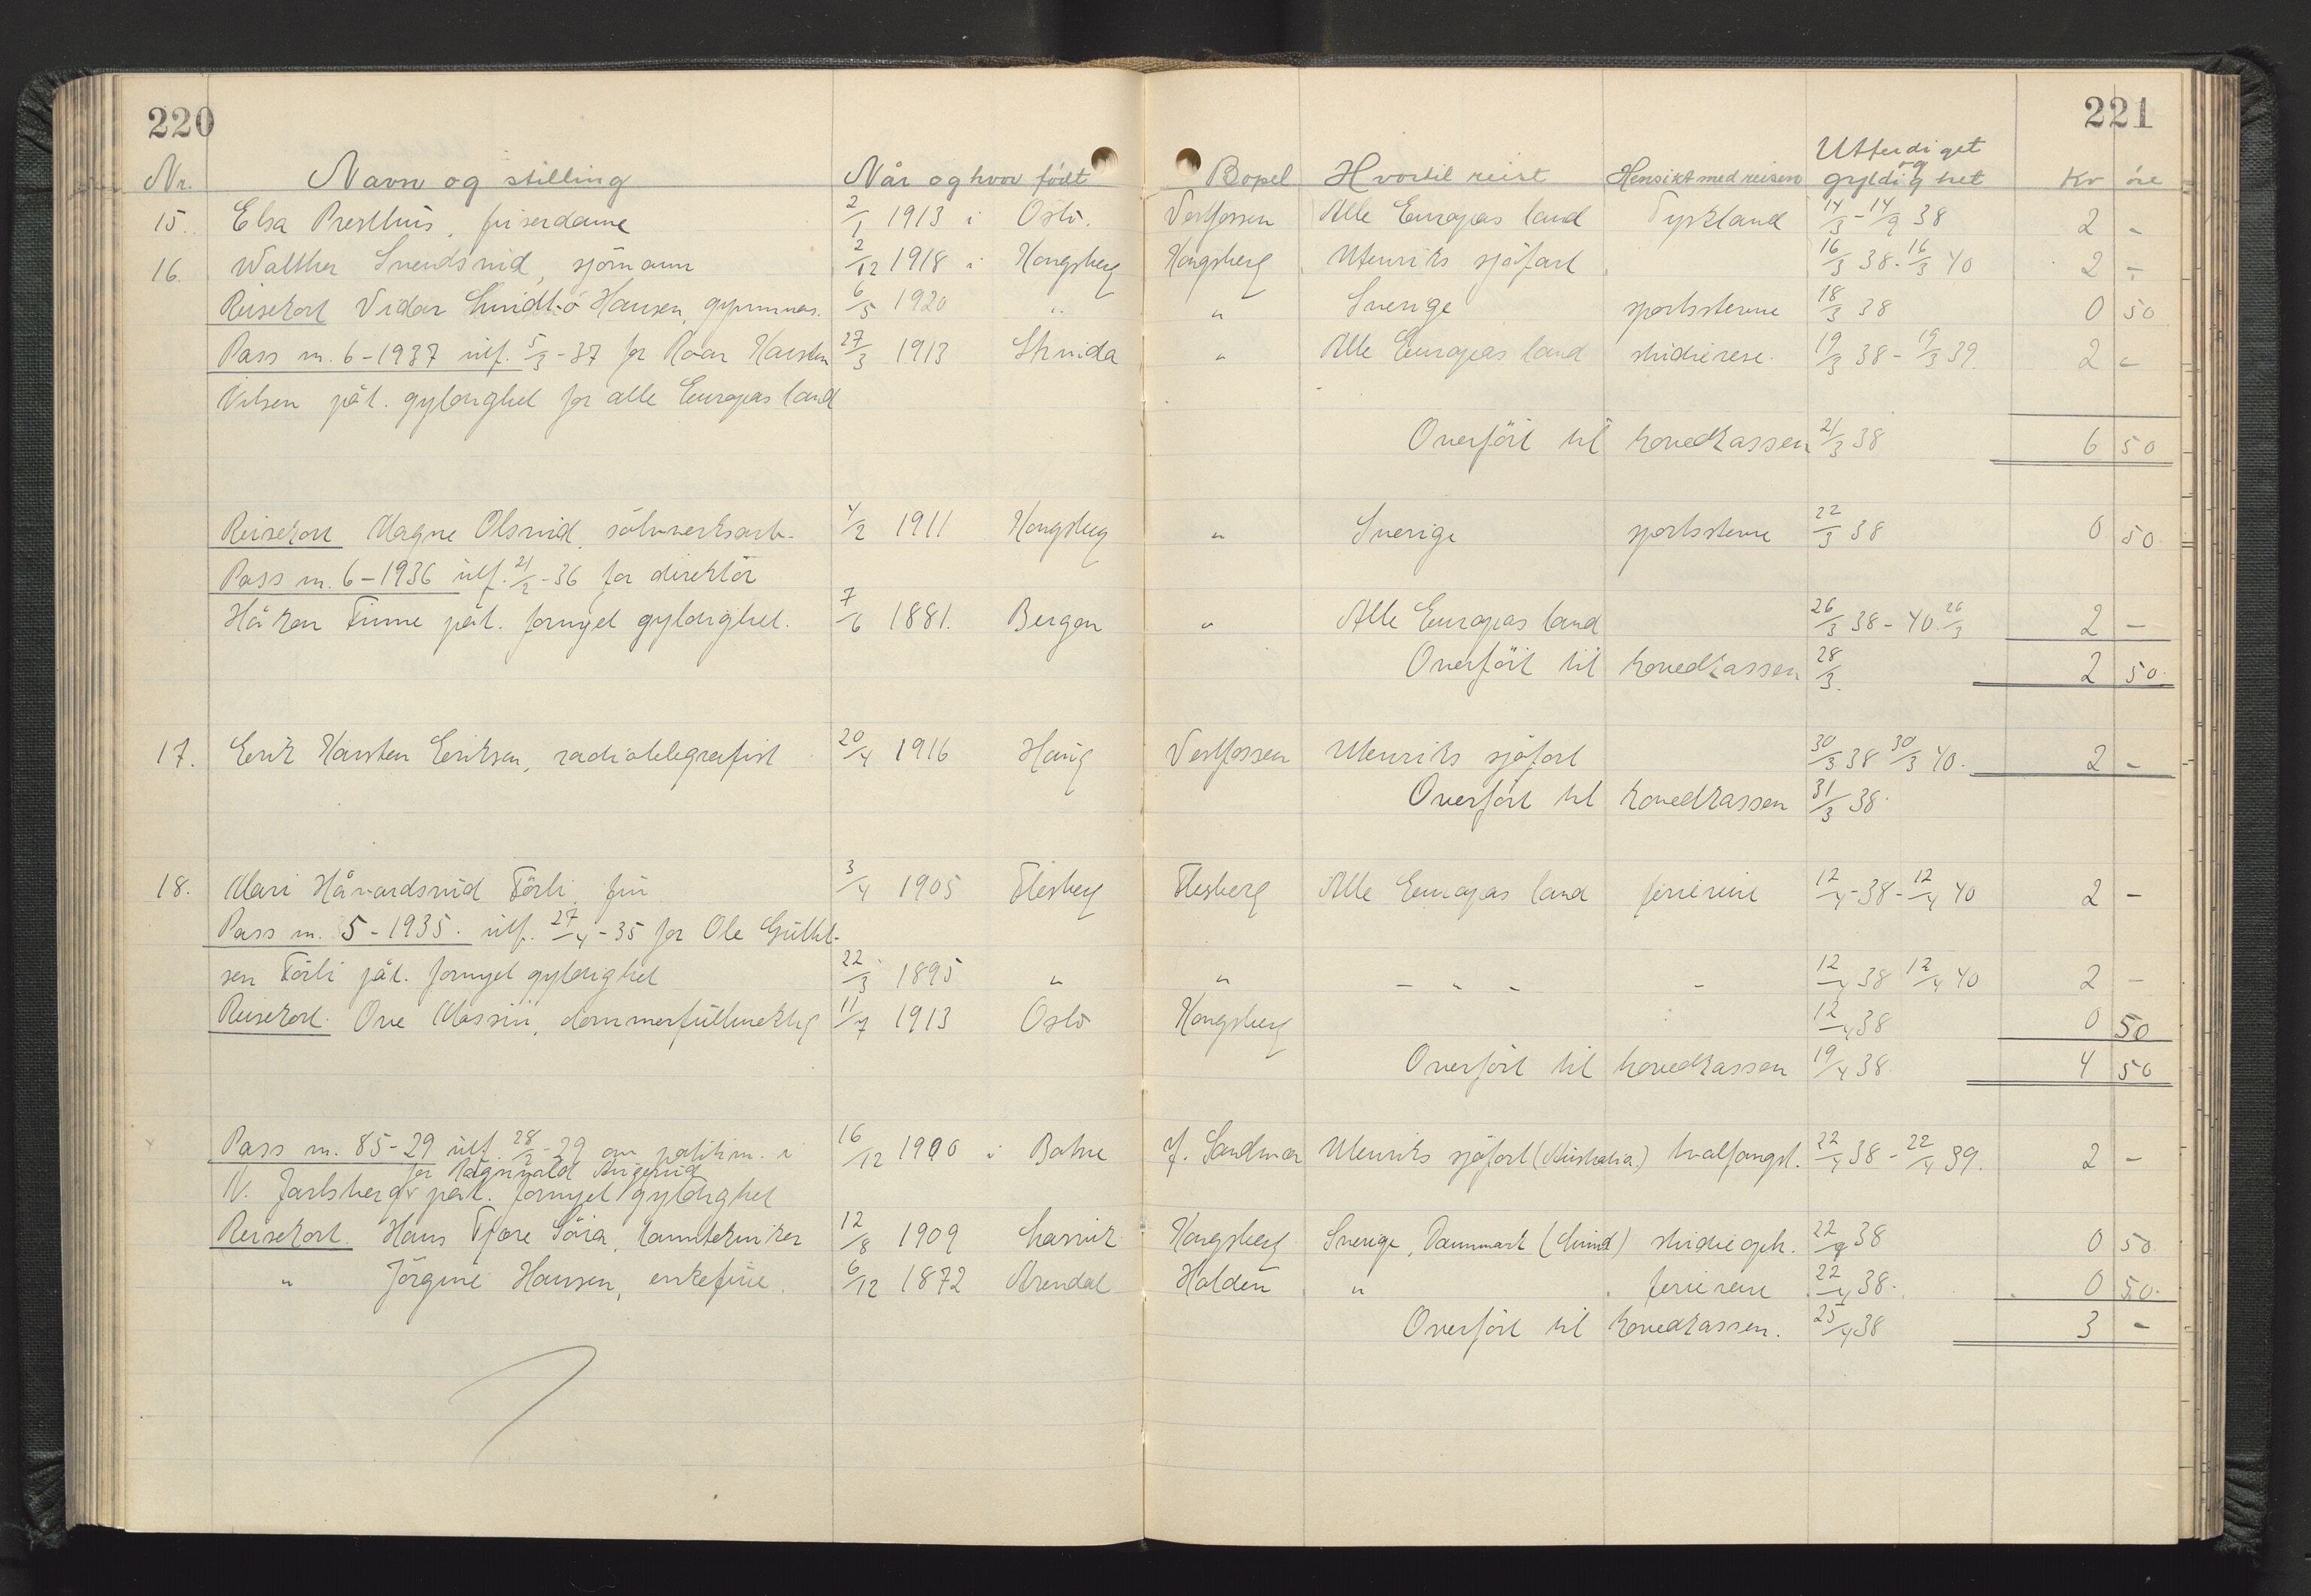 220
221
Nr. Navn og stilling Når og hvor født Bopel Hvortil reist Hensikt med reisen Utferdiget og gyldighet Kr øre
15. Elsa Presthus, friserdame 2/1 1913 i Oslo. Vestfossen Alle Europas land Tyskland 14/3 - 14/9 38 2 -
16. Walther Svendsrud, sjömann 2/12 1918 i Kongsberg Kongsberg Utenriks sjöfart 16/3 38 - 16/3 40 2 -
Reisekort Vidar Hansen, gymnas. 6/5 1920 " " Sverige sportsstevne 18/3 38 0 50
Pass nr. 6-1937 utf. 5/3-37 for Roar Karsten 27/3 1913 " Alle Europas land studiereise. 19/3 38 - 19/3 39. 2 -
Nilsen påt. gyldighet for alle Europas land
Overfört til hovedkassen 21/3 38 6 50
Reisekort Magne Olsrud, sölvverksarb. 4/2 1911 Kongsberg " Sverige sportsstevne 22/3 38 0 50
Pass nr. 6-1936 utf. 21/2-36 for direktör
Håkon Finne påt. fornyet gyldighet. 7/6 1881. Bergen " Alle Europas land 26/3 38 - 40. 26/3 2 -
Overfört til hovedkassen 28/3. 2 50.
17. Erik Karsten Eriksen, radiotelegrafist 20/4 1916 Haug Vestfossen Utenriks sjöfart 30/3 38 30/3 40. 2 -
Overfört til hovedkassen 31/3 38.
18. Mari Håvardsrud Förli, fru 3/4 1905 Flesberg Flesberg Alle Europas land feriereise 12/4-38 - 12/4 40 2 -
Pass nr. 5-1935. utf. 27/4-35 for Ole Gullik-
sen Förli påt. fornyet gyldighet 22/3 1895 " " - " - - 12/4 38 12/4 40 2 -
Reisekort. Ove dommerfullmektig 11/7 1913 Oslo Kongsberg 12/4 38 0 50
Overfört til hovedkassen 19/4 38. 4 50
Pass nr. 85-29 utf. 28/2-29 av politim. i 16/12 1900 i Botne Utenriks sjöfart (Australia) hvalfangst. 22/4 38 - 22/4 39. 2 -
for Ragnvald
N. Jarlsberg påt. fornyet gyldighet
Reisekort. Hans Tjøre 12/8 1909 Larvik Kongsberg Sverige, Danmark studieoph. 22/4 38 0 50
" Jörgine Hansen, enkefrue. 6/12 1872 Arendal Halden " feriereise 22/4 38. 0 50.
Overfört til hovedkassen. 25/4 38 3 -